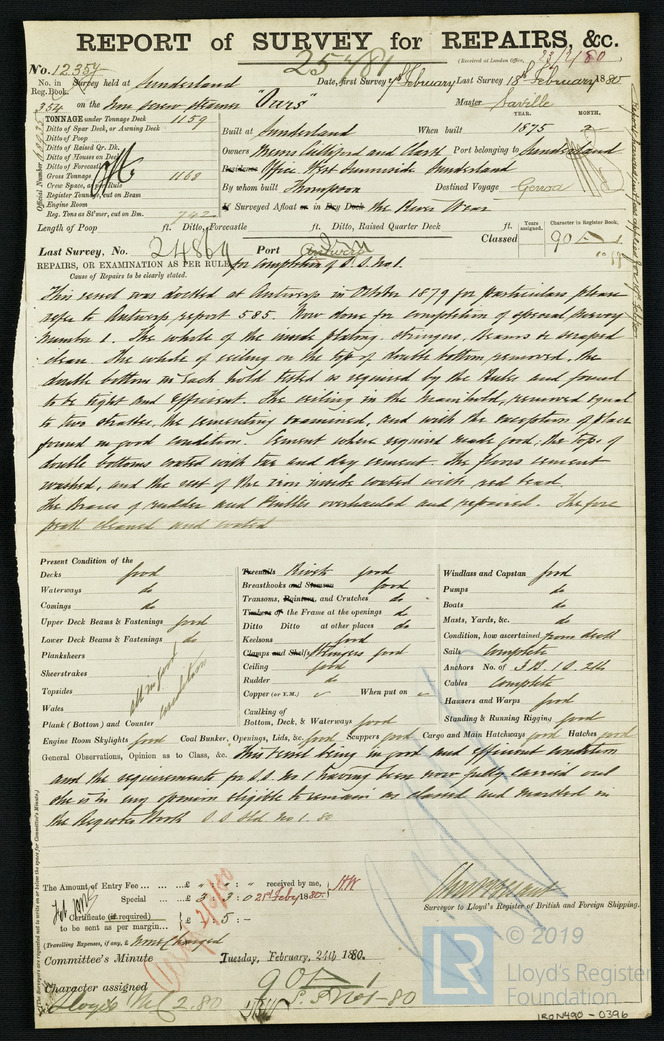 REPORT of SURVEY for REPAIRS, &c.
(Received at London Office, 23/2/80
No. 12354
No. in Survey held at Sunderland Date, first Survey February Last Survey 18th February 1880
Reg. Book.
354 on the Iron Screw Steamer "Ours" Master Saville
TONNAGE under Tonnage Deck 1159
Ditto of Spar Deck, or Awning Deck
Ditto of Poop
Ditto of Raised Qr. Dk.
Ditto of Houses on Deck
Ditto of Forecastle
Gross Tonnage 1168
Crew Space, as per Rule
Register Tonnage, cut on Beam
Engine Room
Reg. Tons as St'mer, cut on Bm. 742
Official Number
YEAR. MONTH.
Built at Sunderland When built 1875 2
Owners Messrs and Clark Port belonging to Sunderland
Residence Office West Sunniside Sunderland
By whom built Thompson Destined Voyage Genoa
If Surveyed Afloat or in Dry Dock the River Wear
Length of Poop ft. Ditto, Forecastle ft. Ditto, Raised Quarter Deck ft.
Years assigned. Character in Register Book.
Classed 90 A 1
Last Survey, No. 24864 Port Antwerp
REPAIRS, OR EXAMINATION AS PER RULE, for Completion of S.S. No 1.
Cause of Repairs to be clearly stated.
This vessel was docked at Antwerp in October 1879 for particulars please
refer to Antwerp report 585. Now done for completion of special survey
number 1. The whole of the inside plating, stringers, Beams &c scraped
clean. The whole of ceiling on the top of double bottom removed, the
double bottom in each hold tested as required by the Rules and found
to be tight and efficient. The ceiling in the Mainhold, removed equal
to two strakes, the cementing examined, and with the exception of places
found in good condition. Cement where required made good; the tops of
double bottoms coated with tar and dry cement. The floors cement
washed, and the rest of the iron inside coated with red lead.
The braces of rudder and pintles overhauled and repaired. The fore
peak cleaned and coated
Present Condition of the
Decks good
Waterways do
Comings do
Upper Deck Beams & Fastenings good
Lower Deck Beams & Fastenings do
Planksheers
Sheerstrakes
Topsides
Wales
Plank (Bottom) and Counter
all in good condition
Treenails Rivets good
Breasthooks and Stemson good
Transoms, Pointers, and Crutches do
Timbers of the Frame at the openings do
Ditto Ditto at other places do
Keelsons good
Clamps and Shelfs Stringers good
Ceiling good
Rudder do
Copper (or Y.M.) When put on
Caulking of
Bottom, Deck, & Waterways good
Windlass and Capstan good
Pumps do
Boats do
Masts, Yards, &c. do
Condition, how ascertained from deck
Sails Complete
Anchors No. of 3 B. 1 S. 2 K
Cables Complete
Hawsers and Warps good
Standing & Running Rigging good
Engine Room Skylights good Coal Bunker, Openings, Lids, &c. good Scuppers good Cargo and Main Hatchways good Hatches good
General Observations, Opinion as to Class, &c. This vessel being in good and efficient condition
and the requirements for S.S. No 1 having been now fully carried out
she is in my opinion eligible to remain as classed and marked in
the Register Book S.S. Sld. No 1. 80
The Amount of Entry Fee £ : : received by me,
Special £ 3 : 3 : 0 21st Feby 1880
Certificate (if required) £ 5 -
to be sent as per margin
(Travelling Expenses, if any, £ none Charged
Surveyor to Lloyd's Register of British and Foreign Shipping.
Committee's Minute Tuesday, February, 24th 1880.
Character assigned 90 A 1
S.S No 1-80
Lloyds MC 2.80
LR
© 2019
Lloyd's Register
Foundation
IRON490-0396